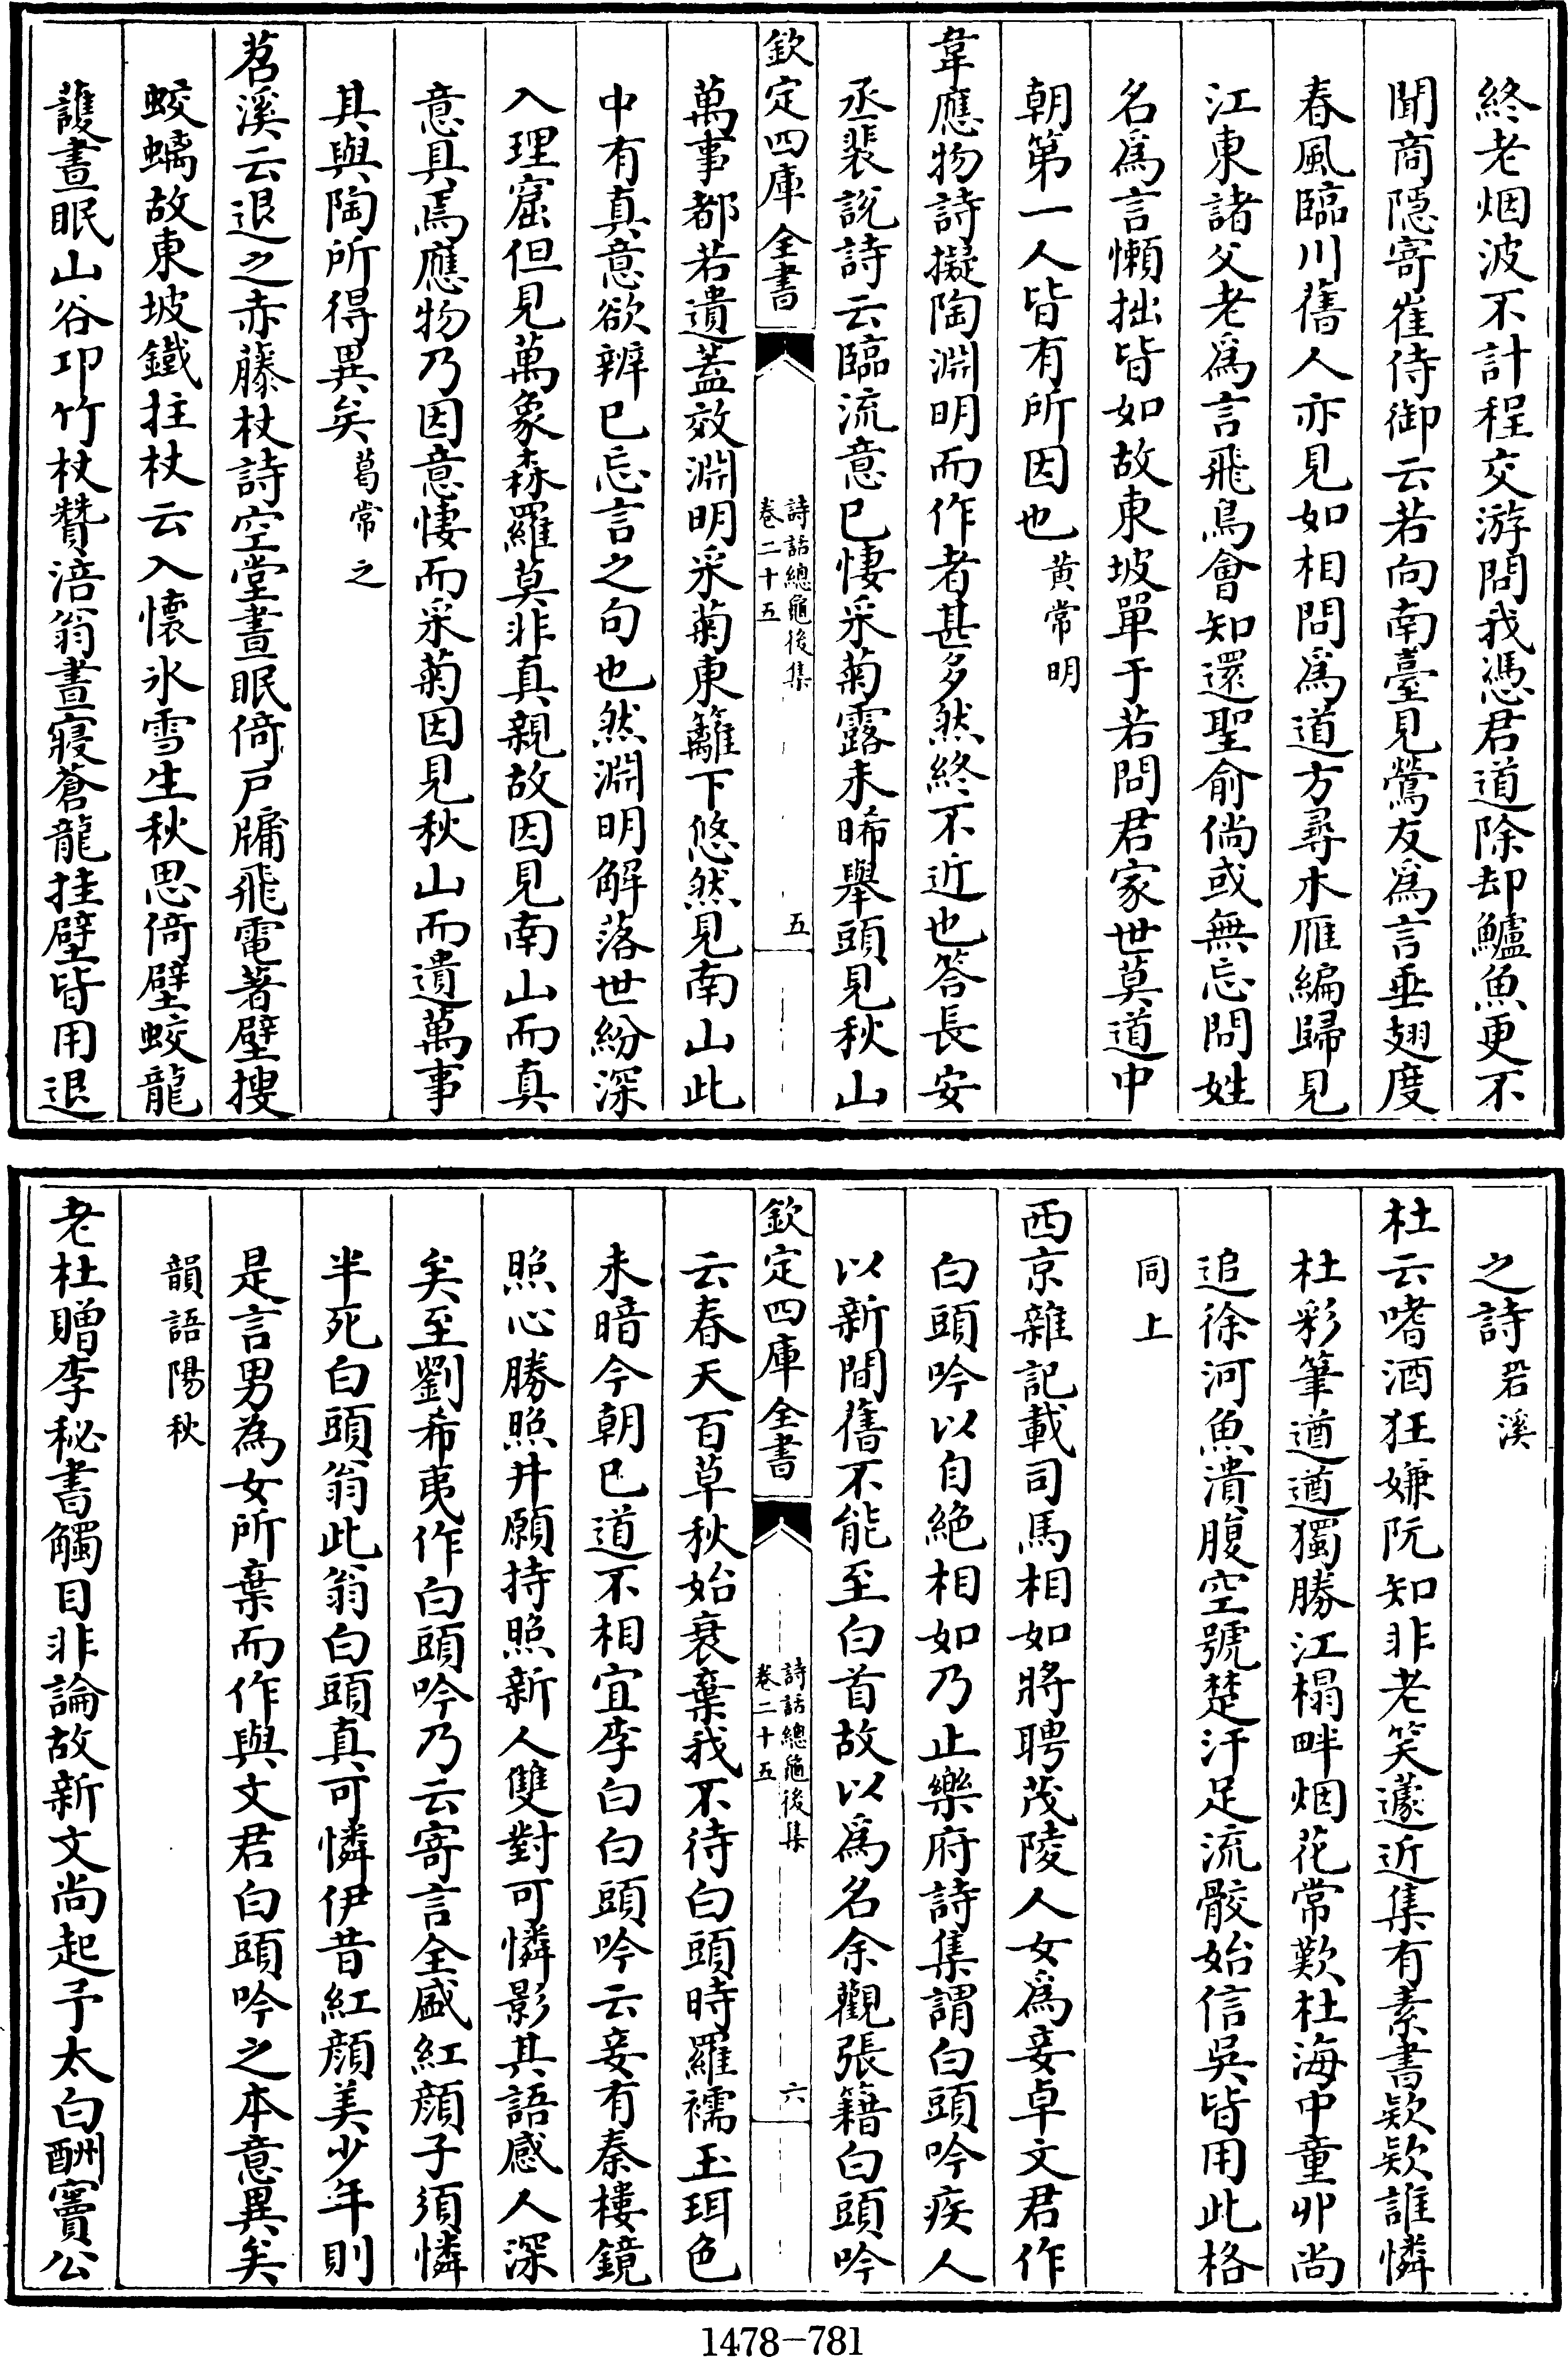 終老烟波不計程交游問我憑君道除却鱸魚更不
聞商隱寄崔侍御云若向南臺見鶯友爲言垂翅度
春風臨川舊人亦見如相問爲道方尋木雁編歸見
江東諸父老爲言飛鳥會知還聖俞倘或無忘問姓
名爲言懶拙皆如故東坡單于若問君家世莫道中
朝第一人皆有所因也黄常明
韋應物詩擬陶淵明而作者甚多然終不近也答長安
丞裴說詩云臨流意已悽采菊露未晞舉頭見秋山
欽定四庫全書
詩話總龜後集
卷二十五
五
萬事都若遺蓋效淵明采菊東籬下悠然見南山此
中有真意欲辨已忘言之句也然淵明解落世紛深
入理窟但見萬象森羅莫非真親故因見南山而真
意具焉應物乃因意悽而采菊因見秋山而遺萬事
其與陶所得異矣葛常之
苕溪云退之赤藤杖詩空堂晝眠倚戶牖飛電著壁搜
蛟螭故東坡鐵拄杖云入懷氷雪生秋思倚壁蛟龍
護晝眠山谷邛竹杖贊涪翁晝寢蒼龍挂壁皆用退
之詩苕溪
杜云嗜酒狂嫌阮知非老笑蘧近集有素書欵欵誰憐
杜彩筆遒遒獨勝江榻畔烟花常歎杜海中童丱尚
追徐河魚潰腹空號楚汗足流骹始信吳皆用此格
同上
西京雜記載司馬相如將聘茂陵人女爲妾卓文君作
白頭吟以自絶相如乃止樂府詩集謂白頭吟疾人
以新間舊不能至白首故以爲名余觀張籍白頭吟
欽定四庫全書
詩話總龜後集
卷二十五
六
云春天百草秋始衰棄我不待白頭時羅襦玉珥色
未暗今朝已道不相宜李白白頭吟云妾有秦樓鏡
照心勝照井願持照新人雙對可憐影其語感人深
矣至劉希夷作白頭吟乃云寄言全盛紅顔子須憐
半死白頭翁此翁白頭真可憐伊昔紅顔美少年則
是言男為女所棄而作與文君白頭吟之本意異矣
韻語陽秋
老杜贈李秘書觸目非論故新文尚起予太白酬竇公
1478-781